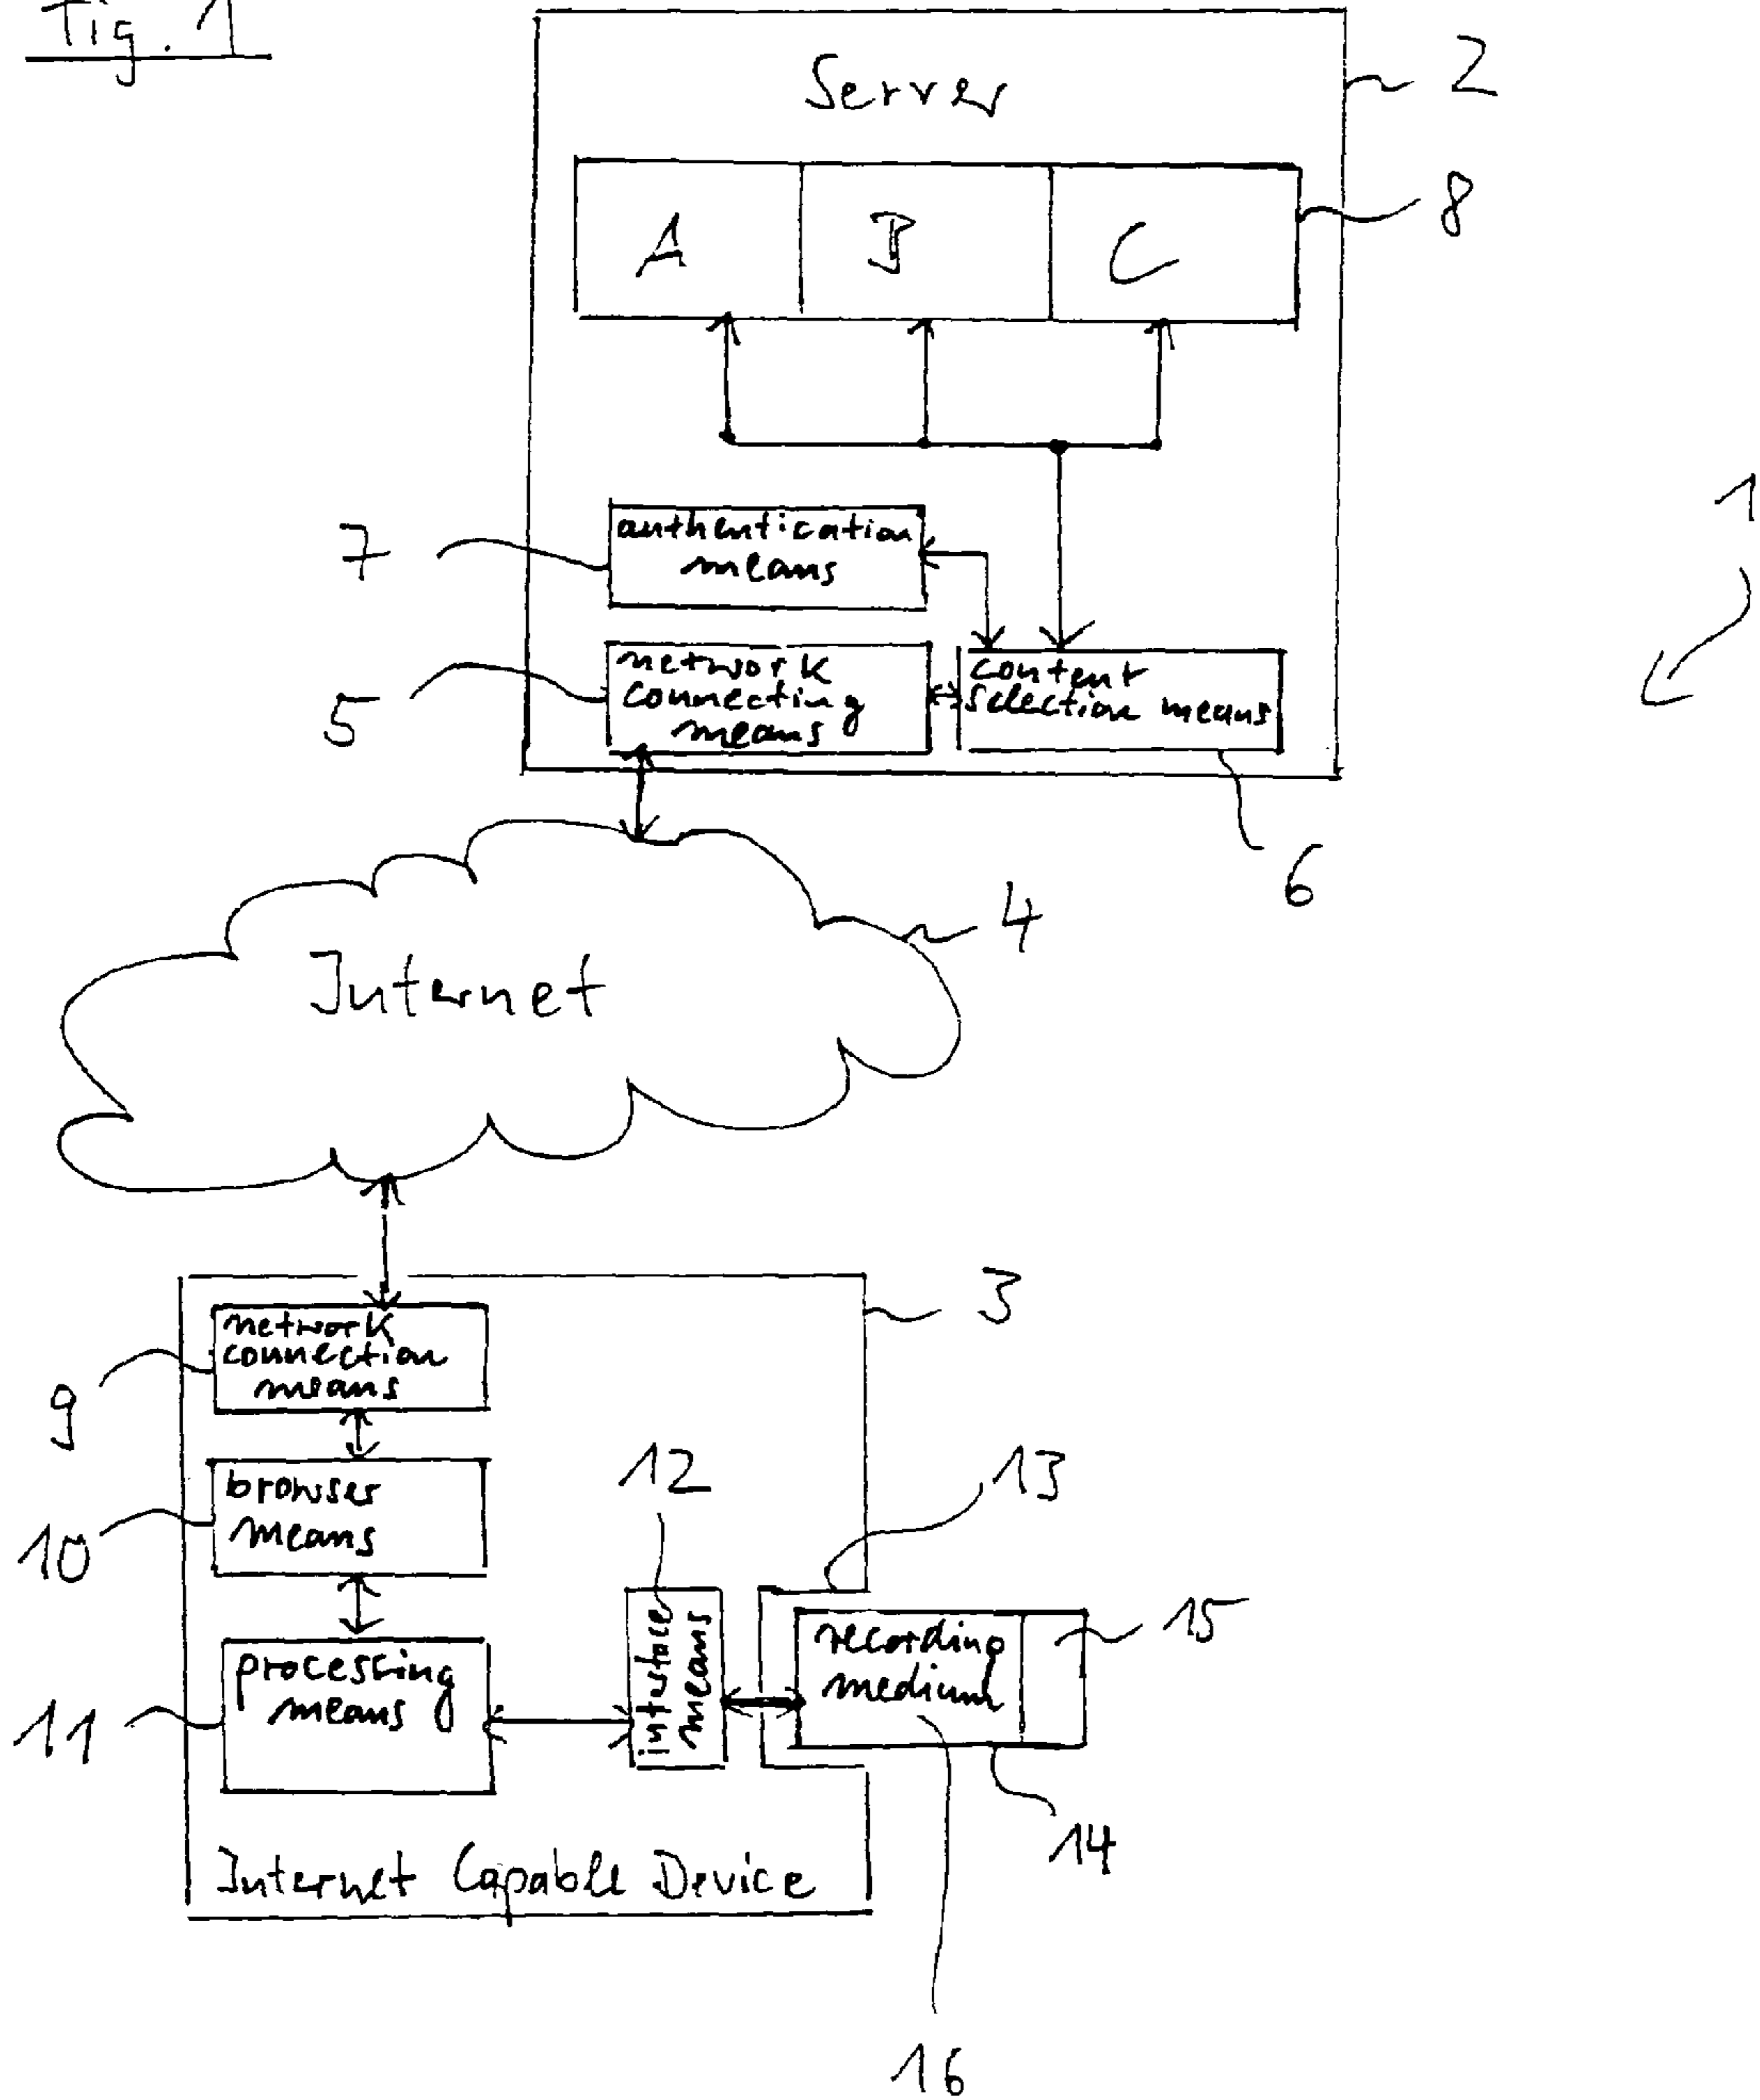 Fig. 1
Server
2
A B C
8
1
7
authentication
means
5
network
connecting
means
content
selection means
6
4
Internet
3
network
connection
means
9
12
13
browser
means
10
15
interface
means
recording
medium
processing
means
11
14
Internet Capable Device
16